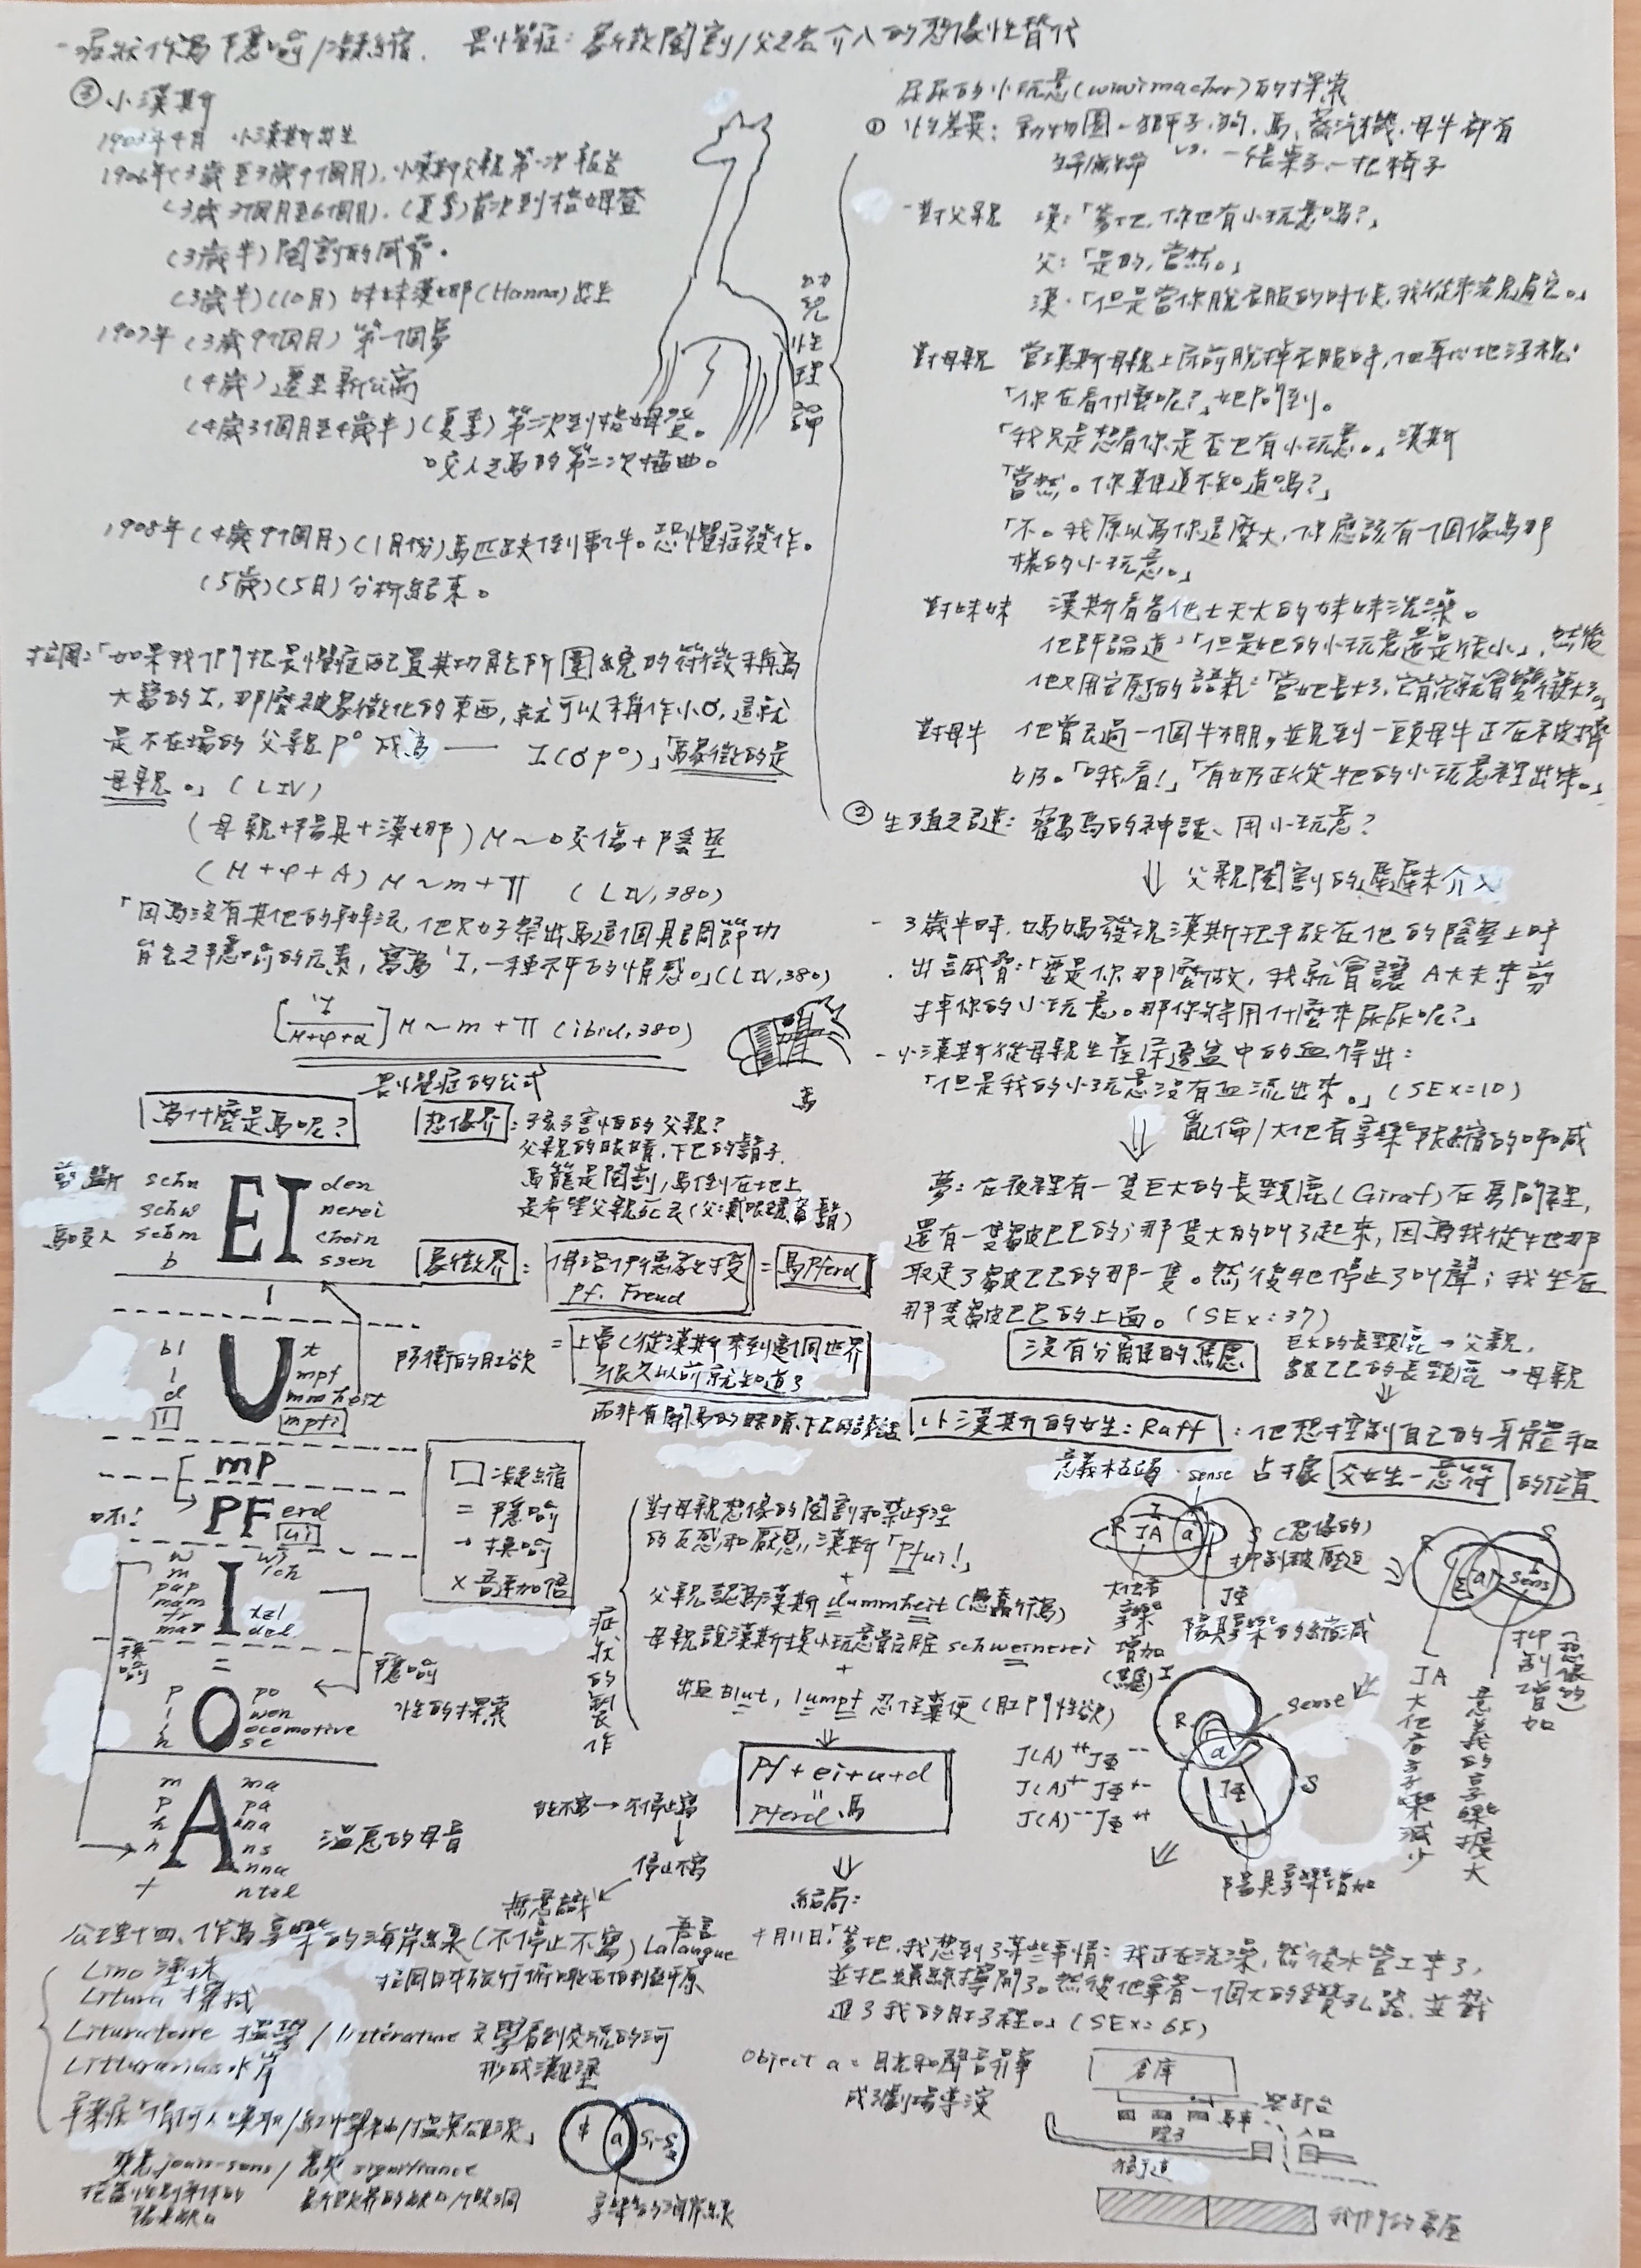 一症狀作為隱喻/凝縮. 畏懼症：象徵閹割/父之名介入的想像性替代
③小漢斯
1903年4月 小漢斯出生
1906年(3歲至3歲9個月).小漢斯父親第一次報告
(3歲3個月至6個月).(夏季)首次到格姆登
(3歲半)閹割的威脅。
(3歲半)(10月)妹妹漢娜(Hanna)出生
1907年(3歲9個月)第一個夢
(4歲)遷至新公寓
(4歲3個月至4歲半)(夏季)第二次到格姆登。
咬人之馬的第二次插曲。
1908年(4歲9個月)(1月份)馬匹跌倒事件。恐懼症發作。
(5歲)(5月)分析結束。
拉岡：「如果我們把畏懼症配置其功能所圍繞的符徵稱為
大寫的I，那麼被象徵化的東西，就可以稱作小σ，這就
是不在場的父親p° 成為 —— I(σp°)」「馬象徵的是
母親。」(LIV)
(母親+陽具+漢娜)M~咬傷+陰莖
(M+φ+A)M~m+Π (LIV,380)
「因為沒有其他的辦法，他只好祭出馬這個具調節功
能之隱喻的元素，寫為 'I，一種不平的情感。」(LIV,380)
['I/M+φ+α]M~m+Π (ibid,380)
畏懼症的公式
馬
為什麼是馬呢？
想像界：孩子害怕的父親？
父親的眼睛．下巴的鬍子．
馬籠是閹割，馬倒在地上
是希望父親死去(父:戴眼鏡蓄鬍)
象徵界：佛洛伊德教授 Pf. Freud = 馬Pferd
=上帝(從漢斯來到這個世界
很久以前就知道了
而非有關馬的眼睛、下巴的談話
剪斷 schn
schw
馬咬人 schm
b
EI
den
nerei
chein
ssen
bl
l
d
l
U
t
mpf
mmheit
mpfi
肛欲
mP
PF erd
ui
呸！
w
m
pap
mam
fr
mar
I
wi
ich
tzl
del
換喻
隱喻
=
p
l
h
O
po
wen
ocomotive
se
性的探索
m
p
h
n
+
A
ma
pa
nna
ns
nna
ntzl
溫馬的母音
□凝縮
=隱喻
→換喻
×音素加倍
症狀的製作
對母親想像的閹割和禁止手淫
的反感和厭惡，漢斯「Pfui!」
+
父親認為漢斯dummheit(愚蠢行為)
母親說漢斯摸小玩意骯髒schweinerei
+
出血Blut, lumpf 忍住糞便(肛門性欲)
Pf+ei+u+d
"
Pferd 馬
能不寫→不停止寫
停止不寫
無意識
幼兒性理論
尿尿的小玩意(wiwimacher)的探索
①性差異：動物園－獅子、狗、馬、蒸汽機、母牛都有
vs. 一張桌子、一把椅子
－對父親 漢：「爹地，你也有小玩意嗎？」
父：「是的，當然。」
漢：「但是當你脫衣服的時候，我從來沒見過它。」
對母親 當漢斯母親上床前脫掉衣服時，他專心地注視：
「你在看什麼呢？」她問到。
「我只是想看你是否也有小玩意。」漢斯
「當然。你難道不知道嗎？」
「不。我原以為你這麼大，你應該有一個像馬那
樣的小玩意。」
對妹妹 漢斯看著他七天大的妹妹洗澡。
他評論道：「但是她的小玩意還是很小」，然後
他又用安慰的語氣：「當她長大了，它肯定就會變得大。」
對母牛 他曾去過一個牛棚，並見到一頭母牛正在被擠
奶。「哦，看！」「有奶正從牠的小玩意裡出來。」
②生殖之謎：鸛鳥的神話、用小玩意？
⇓父親閹割的遲遲未介入
－3歲半時，媽媽發現漢斯把手放在他的陰莖上呼
出言威脅：「要是你那麼做，我就會讓A大夫來剪
掉你的小玩意。那你將用什麼來尿尿呢？」
－小漢斯從母親生產尿盆中的血得出：
「但是我的小玩意沒有血流出來。」(SEx:10)
⇓亂倫/大他者享樂的呼喊
夢：在夜裡有一隻巨大的長頸鹿(Giraf)在房間裡，
還有一隻皺巴巴的；那隻大的叫了起來，因為我從牠那
取走了皺巴巴的那一隻。然後牠停止了叫聲；我坐在
那隻皺巴巴的上面。(SEx:37)
沒有分離的焦慮
巨大的長頸鹿→父親，
皺巴巴的長頸鹿→母親
小漢斯的女生：Raff：他想控制自己的身體和
意義枯竭·sense 占據父女生一意符的位置
R I JA a S (想像的)
抑制被壓迫
大他者享樂增加
JΦ
陽具享樂的縮減
R Σ a sens S
JA
大他者享樂減少
意義的享樂擴大
抑制增加(想像的)
R I a sense JΦ S
J(A)++JΦ--
J(A)+JΦ+-
J(A)--JΦ++
陽具享樂增加
結局：
4月11日：「爹地，我想到了某些事情：我正在洗澡，然後水管工來了，
並把螺絲擰開了。然後他拿著一個大的鑽孔器，並戳
進了我的肚子裡。」(SEx:65)
object a=目光和聲音
成了劇場導演
倉庫
裝卸台
馬車
院子
入口
街道
我們的房屋
公理十四、作為享樂的海岸線(不停止不寫) Lalangue
Lino 塗抹
Litura 擦拭
Lituraterre /littérature 文學看到交流的河
形成灘塗
Litturarius 水岸
拉岡日本旅行俯瞰西伯利亞平原
$ a S₁-S₂
享樂的海岸線
jouis-sens/ signifiance